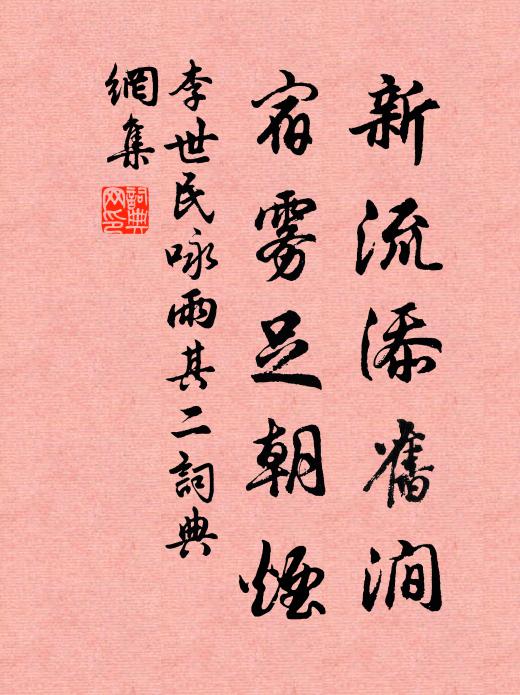 新流添舊澗
宿雾足朝煙
李世民咏雨其二詞典
網集
詞典網印